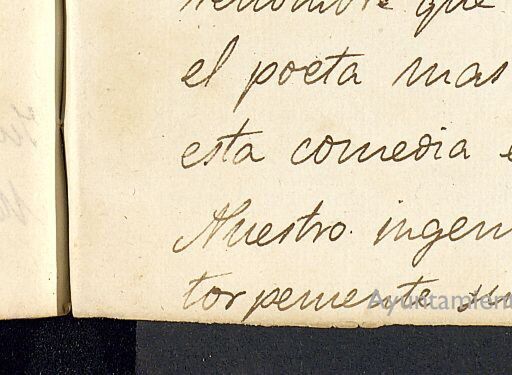 que
el poeta mas
esta comedia
Nuestro ingen
torpemente
Ayuntamient